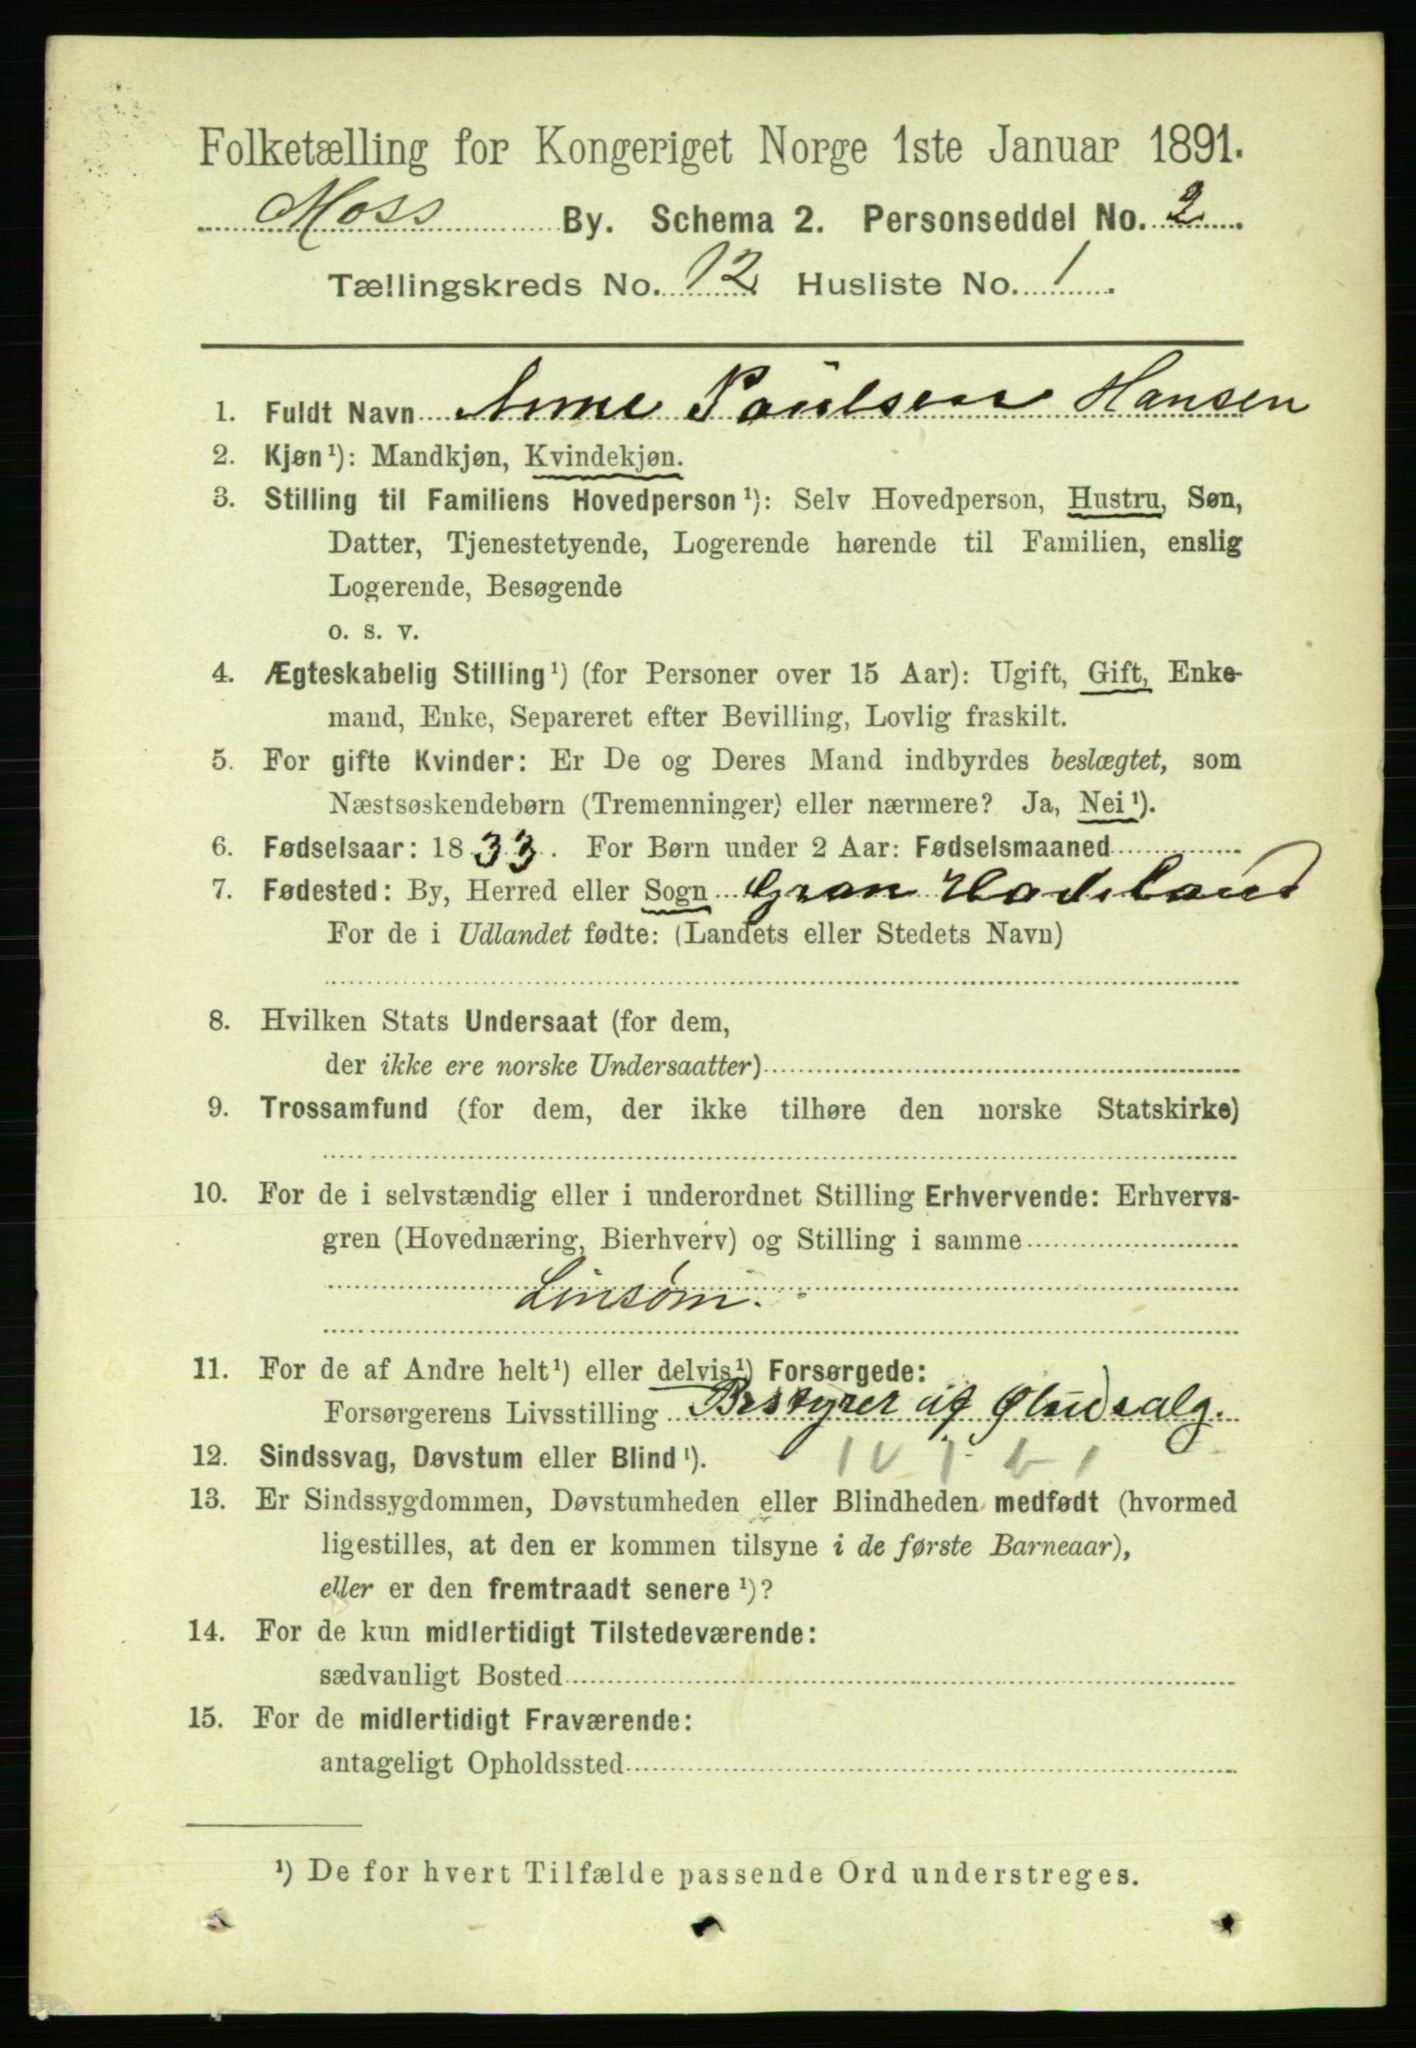 Folketælling for Kongeriget Norge 1ste Januar 1891.
Moss By. Schema 2. Personseddel No. 2
Tællingskreds No. 12 Husliste No. 1
1. Fuldt Navn Anne Paulsen Hansen
2. Kjøn¹): Mandkjøn, Kvindekjøn.
3. Stilling til Familiens Hovedperson¹): Selv Hovedperson, Hustru, Søn,
Datter, Tjenestetyende, Logerende hørende til Familien, enslig
Logerende, Besøgende
o. s. v.
4. Ægteskabelig Stilling¹) (for Personer over 15 Aar): Ugift, Gift, Enke-
mand, Enke, Separeret efter Bevilling, Lovlig fraskilt.
5. For gifte Kvinder: Er De og Deres Mand indbyrdes beslægtet, som
Næstsøskendebørn (Tremenninger) eller nærmere? Ja, Nei¹).
6. Fødselsaar: 1833. For Børn under 2 Aar: Fødselsmaaned
7. Fødested: By, Herred eller Sogn Gran Hadeland
For de i Udlandet fødte: (Landets eller Stedets Navn)
8. Hvilken Stats Undersaat (for dem,
der ikke ere norske Undersaatter)
9. Trossamfund (for dem, der ikke tilhøre den norske Statskirke)
10. For de i selvstændig eller i underordnet Stilling Erhvervende: Erhvervs-
gren (Hovednæring, Bierhverv) og Stilling i samme
Linsøm.
11. For de af Andre helt¹) eller delvis¹) Forsørgede:
Forsørgerens Livsstilling Bestyrer af Øludsalg.
12. Sindssvag, Døvstum eller Blind¹).
13. Er Sindssygdommen, Døvstumheden eller Blindheden medfødt (hvormed
ligestilles, at den er kommen tilsyne i de første Barneaar),
eller er den fremtraadt senere¹)?
14. For de kun midlertidigt Tilstedeværende:
sædvanligt Bosted
15. For de midlertidigt Fraværende:
antageligt Opholdssted
¹) De for hvert Tilfælde passende Ord understreges.